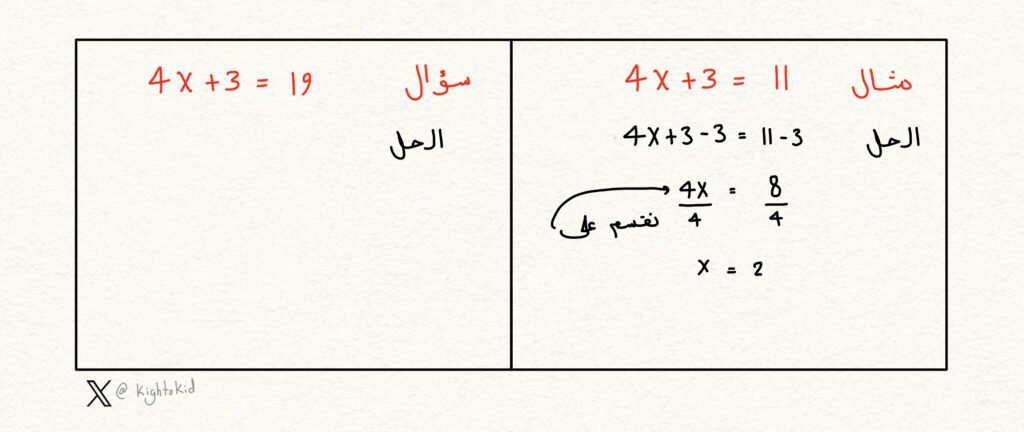 مثال 4x+3 = 11
الحل 4x+3-3 = 11-3
4x = 8
4 4
نقسم على
x = 2
سؤال 4x+3 = 19
الحل
X @ Kightokid